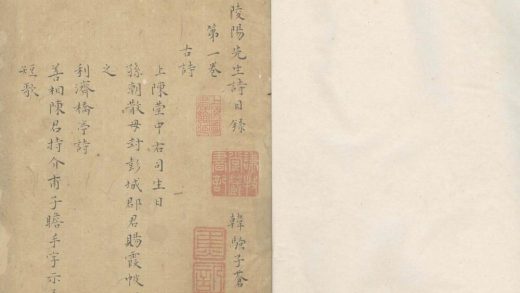 陵陽先生詩目錄
韓駒子蒼
第一卷
古詩
上陳瑩中右司生日
孫朝散母封彭城郡君賜霞帔
之
利濟橋亭詩
善相陳君持介甫子瞻手字示
短歌